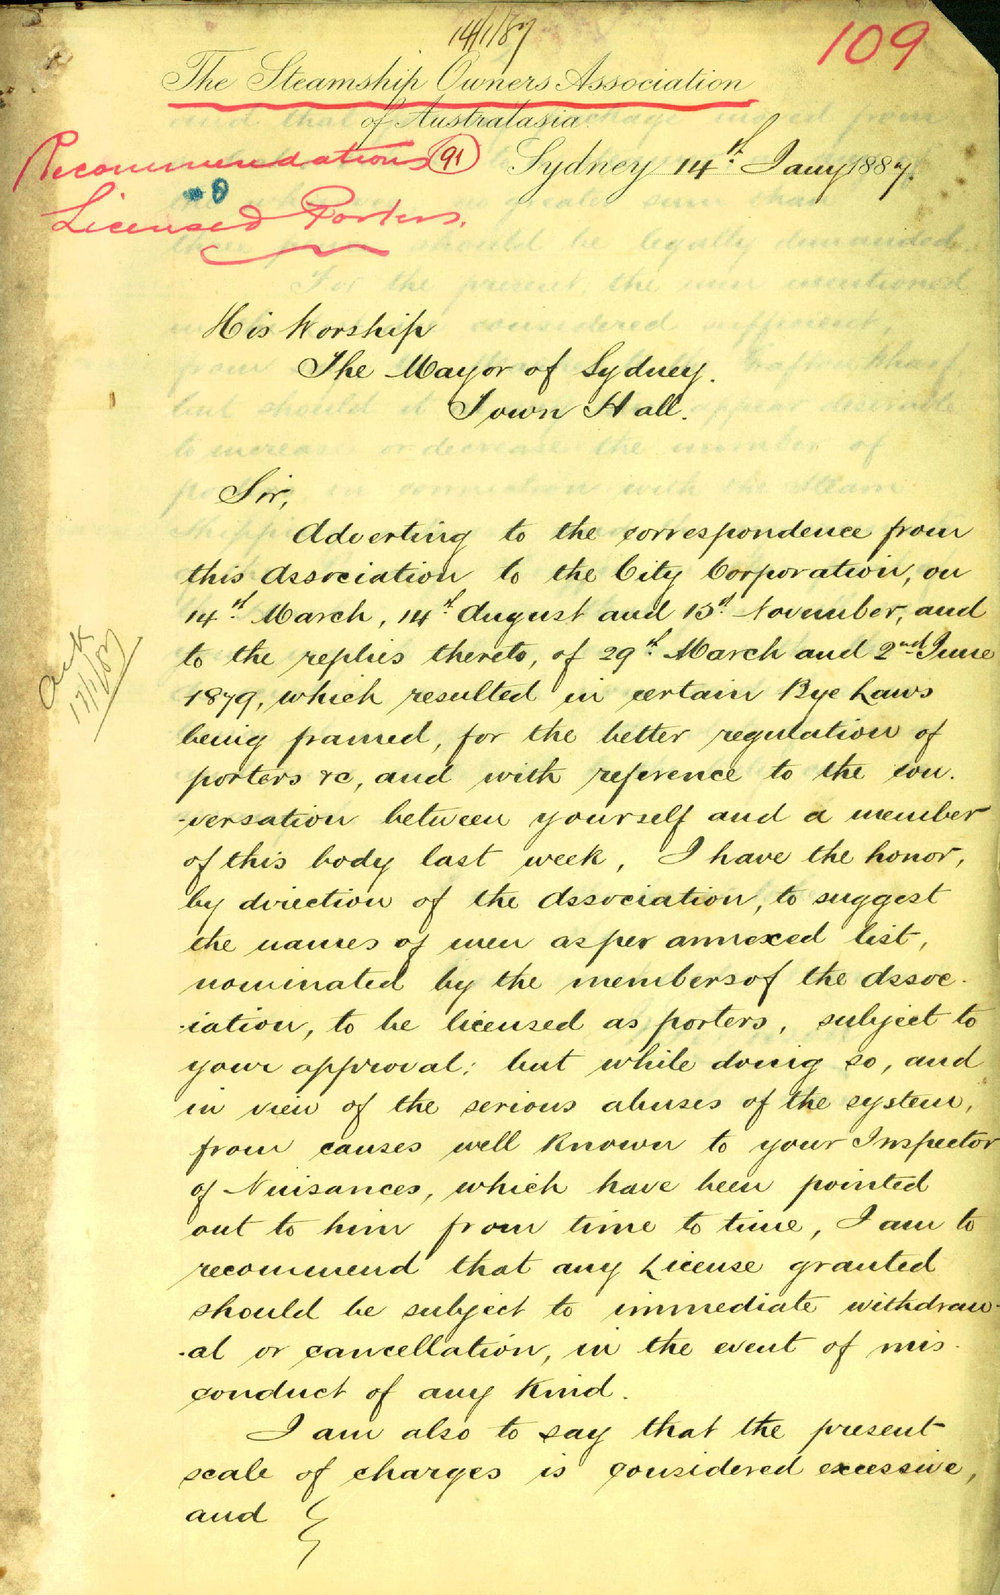 14/1/87
109
The Steamship Owners Association
of Australasia.
Recommendations 91
Sydney 14th Jany 1887.
Licensed Porters.
His Worship
The Mayor of Sydney.
Town Hall.
Sir,
Adverting to the correspondence from
this Association to the City Corporation, on
14th March, 14th August and 15th November, and
to the replies thereto, of 29th March and 2nd June
1879, which resulted in certain Bye Laws
being framed, for the better regulation of
porters &c, and with reference to the con-
-versation between yourself and a member
of this body last week, I have the honor,
by direction of the Association, to suggest
the names of men as per annexed list,
nominated by the members of the Assoc-
-iation, to be licensed as porters, subject to
your approval: but while doing so, and
in view of the serious abuses of the system,
from causes well known to your Inspector
of Nuisances, which have been pointed
out to him from time to time, I am to
recommend that any License granted
should be subject to immediate withdraw-
-al or cancellation, in the event of mis-
conduct of any kind.
I am also to say that the present
scale of charges is considered excessive,
and
Ack
17/1/87